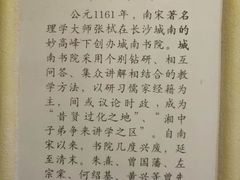 公元1161年，南宋著名
理学大师张栻在长沙城南的
妙高峰下创办城南书院。城
南书院采用个别钻研、相互
问答、集众讲解相结合的教
学方法，以研习儒家经籍为
主，间或议论时政，成为
“昔贤过化之地”、“湘中
子弟争来讲学之区”。自南
宋以来，书院几度兴废，延
至清末。朱熹、曾国藩、左
宗棠、何绍基、黄兴等曾先